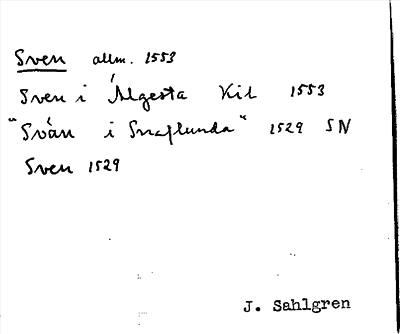 Sven allm. 1553
Sven i Älgesta Kil 1553
"Svän i Snaflunda" 1529 SN
Sven 1529
J. Sahlgren